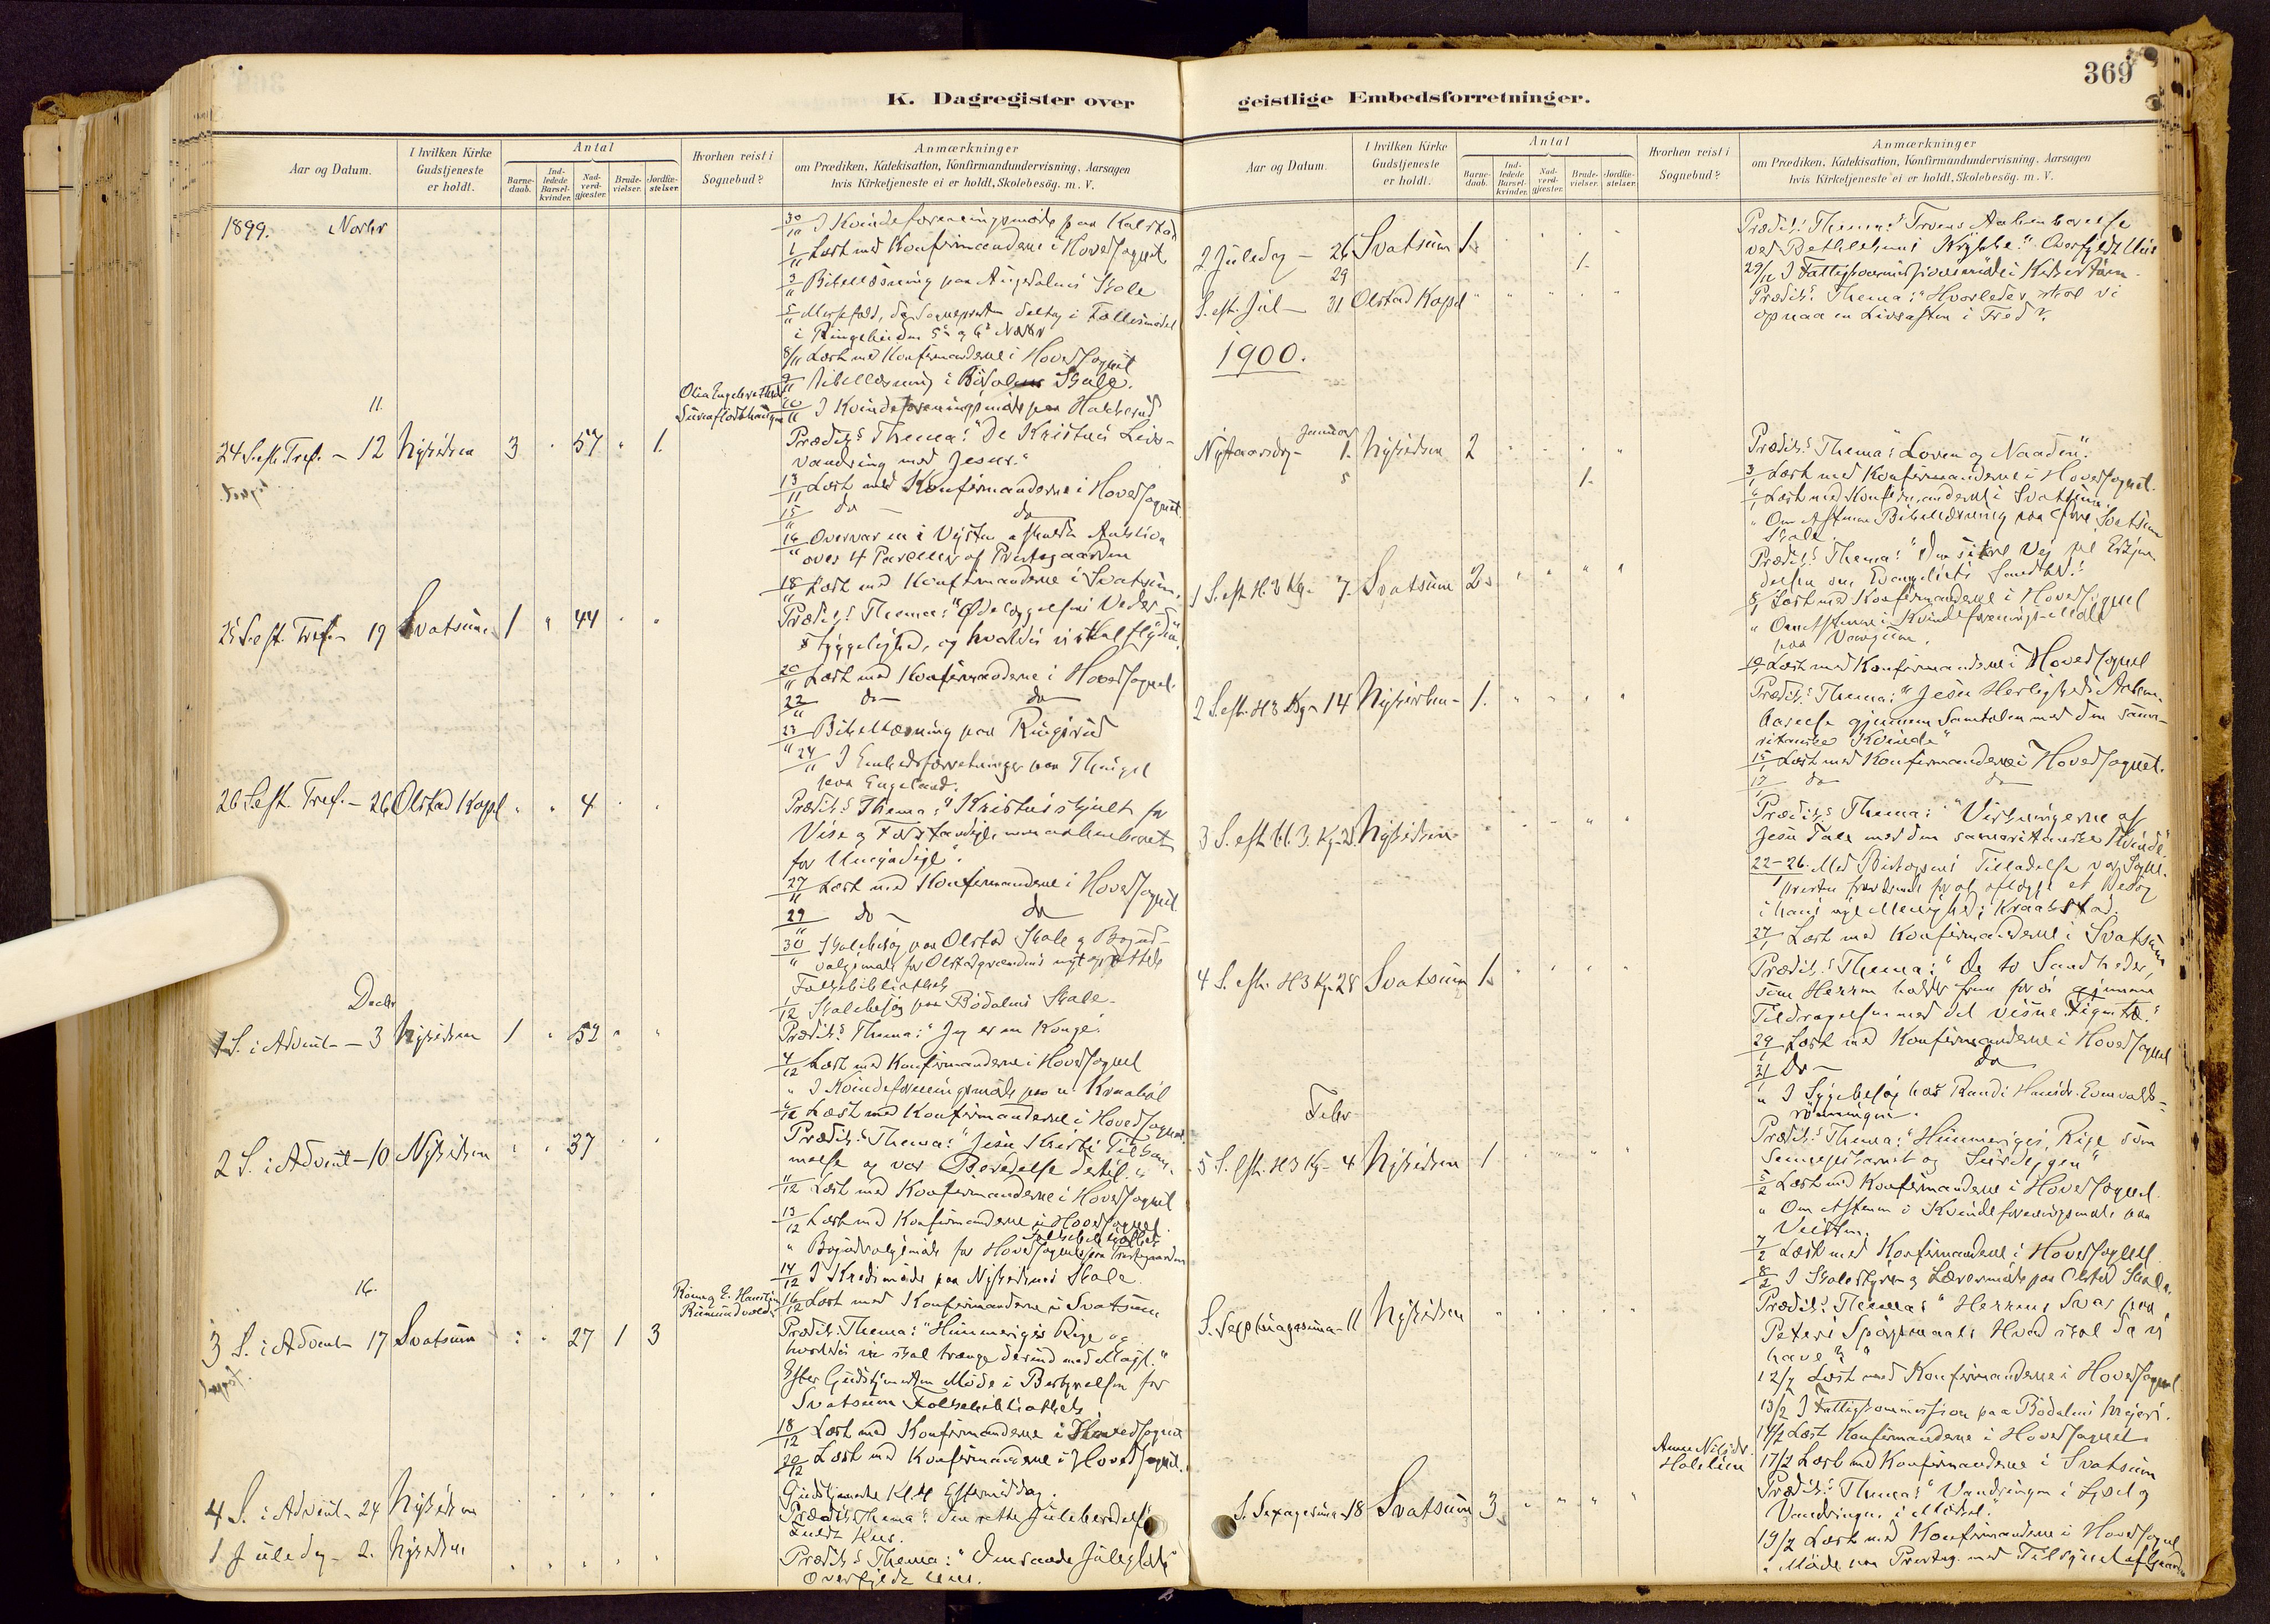 369
K. Dagregister over
geistlige Embedsforretninger.
Aar og Datum.
I hvilken Kirke Gudstjeneste er holdt.
Antal
Barne-daab.
Ind-ledede Barsel-kvinder.
Nad-verd-gjæster.
Brude-vielser.
Jordfæ-stelser.
Hvorhen reist i Sognebud?
Anmærkninger
om Prædiken, Katekisation, Konfirmandundervisning, Aarsagen
hvis Kirketjeneste ei er holdt, Skolebesög. m. V.
1899. Novbr
30/10 I Kvindeforeningsmøde paa Kalstad
1/11 Læst med Konfirmanderne i Hovedsognet
3/11 Bibellæsning paa Skole
5/11 Messefald, da Sognepresten deltog i Fællesmødet
i Ringebu den 5te og 6te Novbr
8/11 Læst med Konfirmanderne i Hovedsognet
9/11 Bibellæsning i Bödalens Skole.
11.
10/11 I Kvindeforeningsmøde paa
24 S. eft. Tref. - 12 Nykirken 3 " 57 " 1.
Prædik. Thema: "De Kristnes Livs-
vandring med Jesus."
13/11 Læst med Konfirmanderne i Hovedsognet
15/11 do - do
16/11 Overvar en i Vejsten afholdt Auktion
over 4 Parceller af Prestegaarden
18/11 Læst med Konfirmanderne i Svatsum.
25 S. eft. Tref. - 19 Svatsum 1 " 44 " "
Prædik. Thema: "Ødelæggelsens Veder-
styggelighed, og hvorledes vi skal flygte".
20/11 Læst med Konfirmanderne i Hovedsognet.
22/11 do - do
23/11 Bibellæsning paa Ringsrud
24/11 I Embedsforretninger paa Thingel
paa Engeland.
26 S. eft. Tref. - 26 Olstad Kapel " " 4 " "
Prædik. Thema: "Kristus skjult for
Vise og Forstandige, men aabenbaret
for Umyndige".
27/11 Læst med Konfirmanderne i Hovedsognet
29/11 do - do
30/11 Skolebesøg paa Olstad Skole og Bogud-
valgsmøde for Olstadgrændens nyt oprettede
Folkebibliothek
Decbr
1/12 Skolebesøg paa Bödalens Skole.
1 S. i Advent - 3 Nykirken 1 " 52 " "
Prædik. Thema: "Jeg er en Konge".
4/12 Læst med Konfirmanderne i Hovedsognet
" I Kvindeforeningsmøde paa n. Kraabøl
6/12 Læst med Konfirmanderne i Hovedsognet
2 S. i Advent - 10 Nykirken " " 37 " "
Prædik. Thema: "Jesu Kristi Tilkom-
melse og vor Beredelse dertil."
11/12 Læst med Konfirmanderne i Hovedsognet
13/12 Læst med Konfirmanderne i Hovedsognet.
" Bogudvalgsmøde for Hovedsognets Folkebibliothek paa Prestegaarden
14/12 I Kredsmøde paa Nykirkens Skole.
16.
16/12 Læst med Konfirmanderne i Svatsum
3 S. i Advent - 17 Svatsum " " 27 1 3
Prædik. Thema: "Himmeriges Rige og
hvorledes vi skal trænge derind med Magt."
Efter Gudstjenesten Møde i Bestyrelsen for
Svatsum Folkebibliothek
18/12 Læst med Konfirmanderne i Hovedsognet
20/12 Læst med Konfirmanderne i Hovedsognet.
4 S. i Advent - 24 Nykirken
Gudstjeneste Kl. 4 Eftermiddag.
Prædik. Thema: Den rette Juleberedelse
Fuldt Hus.
1 Juledag - 2. Nykirken
Prædik. Thema: "Den sande Juleglæde"
Overfyldt Hus.
Aar og Datum.
I hvilken Kirke Gudstjeneste er holdt.
Antal
Barne-daab.
Ind-ledede Barsel-kvinder.
Nad-verd-gjæster.
Brude-vielser.
Jordfæ-stelser.
Hvorhen reist i Sognebud?
Anmærkninger
om Prædiken, Katekisation, Konfirmandundervisning, Aarsagen
hvis Kirketjeneste ei er holdt, Skolebesög. m. V.
2 Juledag - 26 Svatsum 1.
Prædik. Thema: Troens Aabenbarelse
ved Bethlehems Krybbe." Overfyldt Hus
29 1.
S. eft. Jul - 31 Olstad Kapel
Prædik. Thema: "Hvorledes skal vi
opnaa en Livsaften i Fred?
1900.
Januar
Nytaarsdag - 1. Nykirken 2
Prædik. Thema: "Loven og Naaden".
5 1.
3/1 Læst med Konfirmanderne i Hovedsognet.
6/1 Læst med Konfirmanderne i Svatsum.
" Om Aftenen Bibellæsning paa Svatsum
Skole.
1 S. eft. H. 3 Kg. 7. Svatsum 2.
Prædik. Thema: "Den sikre Vej til Erkjen-
delsen om Evangeliets Sandhed."
8/1 Læst med Konfirmanderne i Hovedsognet
" Om Aftenen i Kvindeforenings-Møde
paa
10/1 Læst med Konfirmanderne i Hovedsognet
2 S. eft. H 3 Kg - 14 Nykirken - 1.
Prædik. Thema: "Jesu Herligheds Aaben-
barelse gjennem Samtalen med den sama-
ritanske Kvinde"
15/1 Læst med Konfirmanderne i Hovedsognet.
17 do do
3 S. eft. H. 3. Kg - 21. Nykirken
Prædik. Thema: "Virkningerne af
Jesu Tale med den samaritanske Kvinde".
22-26/1 Med Biskopens Tilladelse var Sogne-
presten fraværende for at aflægge et Besøg
i hans nye Menighed; Kraakstad.
27/1 Læst med Konfirmanderne i Svatsum
4 S. eft. H 3 Kg 28 Svatsum 1.
Prædik. Thema: "De to Sandheder,
som Herren holder frem for os gjennem
Tildragelsen med det visne Figentræ."
29/1 Læst med Konfirmanderne i Hovedsognet
31/1 Do - do
" I Sygebesøg hos Randi Hansdr.
Febr
5 S. eft. H 3 Kg - 4 Nykirken 1
Prædik. Thema: "Himmeriges Rige som
Sennepskornet og Surdejgen"
5/2 Læst med Konfirmanderne i Hovedsognet
" Om Aftenen i Kvindeforeningsmøde paa
Veisten.
7/2 Læst med Konfirmanderne i Hovedsognet
8/2 I Skolestyre- og Lærermøde paa Olstad Skole.
S. Septuagesima - 11 Nykirken
Prædik. Thema: "Herrens Svar paa
Peters Spørgsmaal: Hvad skal da vi
have?"
12/2 Læst med Konfirmanderne i Hovedsognet
13/2 I Fattigkommission paa Bödalens Mejeri.
14/2 Læst Konfirmanderne i Hovedsognet.
17/2 Læst med Konfirmanderne i Svatsum
S. Sexagesima - 18 Svatsum 3
Prædik. Thema: "Vandringen i Lyset og
Vandringen i Mørket."
19/2 Læst med Konfirmanderne i Hovedsognet
" Møde paa Presteg. med Tilsynet